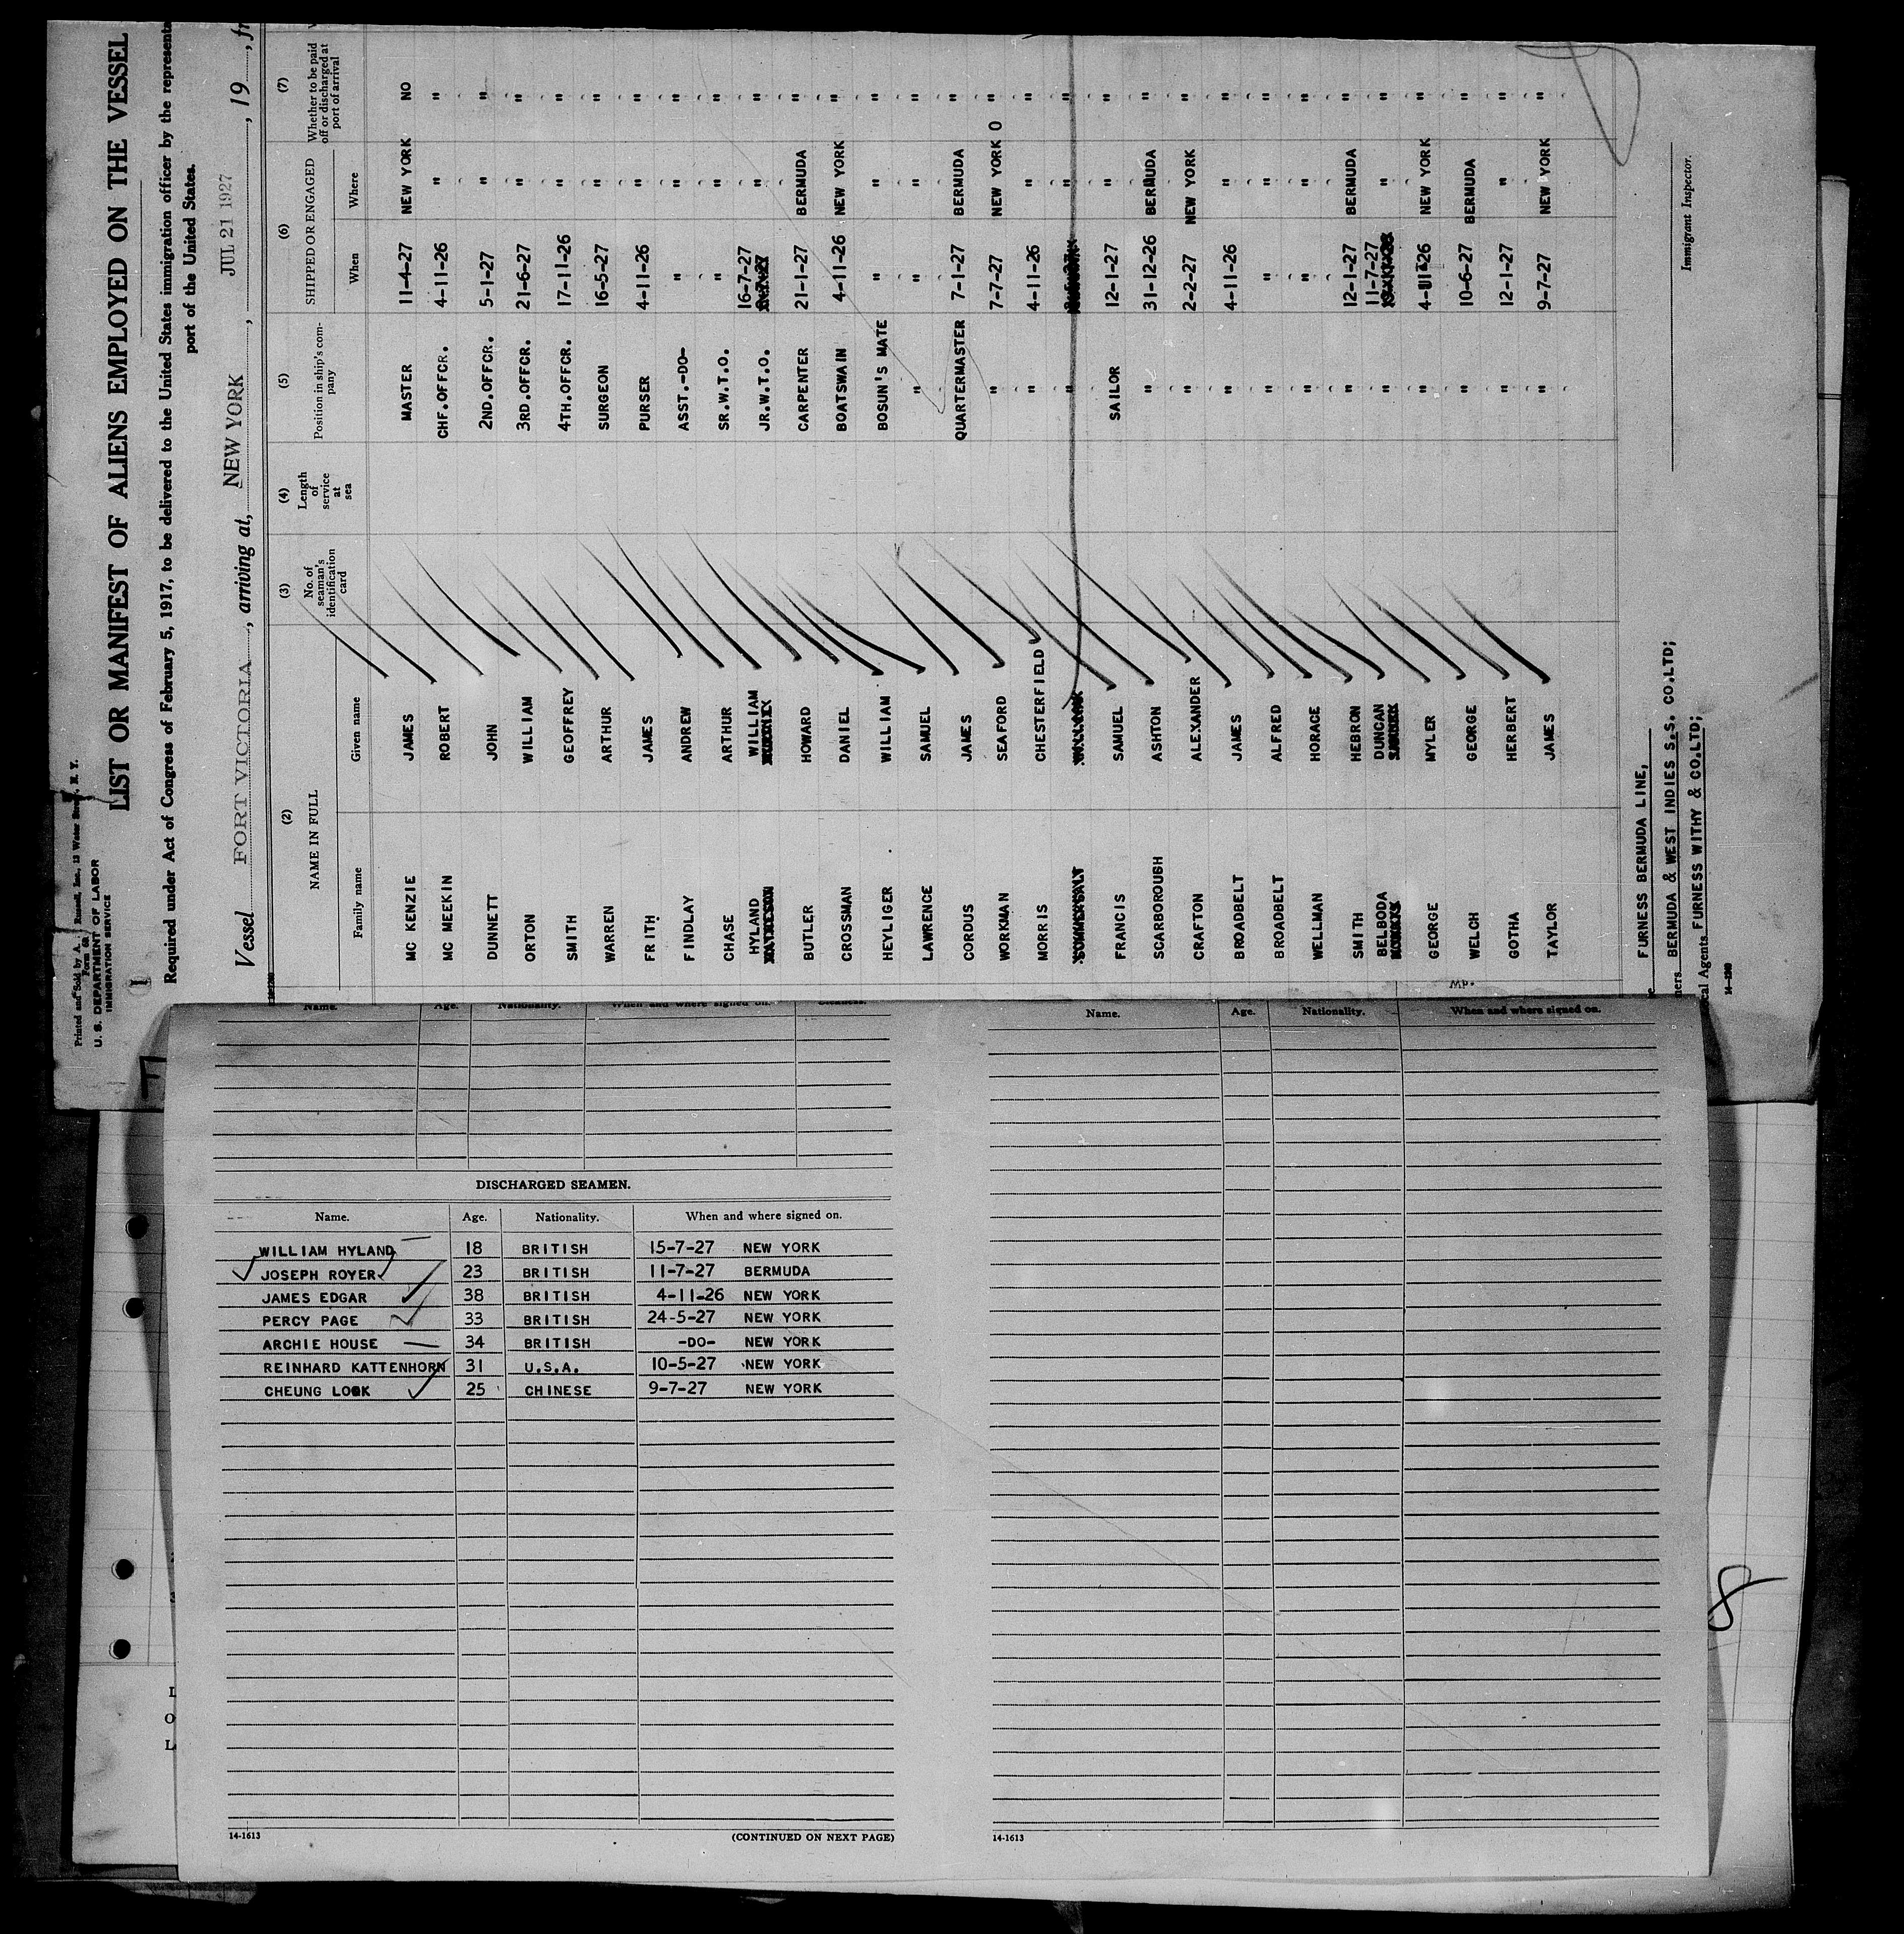 Printed and Sold by A. Russell, Inc., 13 Water Street, N. Y.
U. S. DEPARTMENT OF LABOR
IMMIGRATION SERVICE
1
LIST OR MANIFEST OF ALIENS EMPLOYED ON THE VESSEL
Required under Act of Congress of February 5, 1917, to be delivered to the United States immigration officer by the represent
port of the United States.
Vessel FORT VICTORIA, arriving at, NEW YORK, JUL 21 1927, 19, fr
(2) (3) (4) (5) (6) (7)
NAME IN FULL No. of seaman's identification card Length of service at sea Position in ship's company SHIPPED OR ENGAGED Whether to be paid off or discharged at port of arrival
Family name Given name When Where
MC KENZIE JAMES MASTER 11-4-27 NEW YORK NO
MC MEEKIN ROBERT CHF.OFFCR. 4-11-26 " "
DUNNETT JOHN 2ND.OFFCR. 5-1-27 " "
ORTON WILLIAM 3RD.OFFCR. 21-6-27 " "
SMITH GEOFFREY 4TH.OFFCR. 17-11-26 " "
WARREN ARTHUR SURGEON 16-5-27 " "
FRITH JAMES PURSER 4-11-26 " "
FINDLAY ANDREW ASST.-DO- " " "
CHASE ARTHUR SR.W.T.O. " " "
HYLAND WILLIAM JR.W.T.O. 16-7-27 " "
BUTLER HOWARD CARPENTER 21-1-27 BERMUDA "
CROSSMAN DANIEL BOATSWAIN 4-11-26 NEW YORK "
HEYLIGER WILLIAM BOSUN'S MATE " " "
LAWRENCE SAMUEL " " " "
CORDUS JAMES QUARTERMASTER 7-1-27 BERMUDA "
WORKMAN SEAFORD " 7-7-27 NEW YORK O "
MORRIS CHESTERFIELD " 4-11-26 " "
" " "
FRANCIS SAMUEL SAILOR 12-1-27 " "
SCARBOROUGH ASHTON " 31-12-26 BERMUDA "
CRAFTON ALEXANDER " 2-2-27 NEW YORK "
BROADBELT JAMES " 4-11-26 " "
BROADBELT ALFRED " " " "
WELLMAN HORACE " " " "
SMITH HEBRON " 12-1-27 BERMUDA "
BELBODA DUNCAN " 11-7-27 " "
GEORGE MYLER " 4-11-26 NEW YORK "
WELCH GEORGE " 10-6-27 BERMUDA "
GOTHA HERBERT " 12-1-27 " "
TAYLOR JAMES " 9-7-27 NEW YORK "
FURNESS BERMUDA LINE,
ners BERMUDA & WEST INDIES S.S. CO.LTD;
cal Agents FURNESS WITHY & CO.LTD;
14-1240
Immigrant Inspector.
Name. Age. Nationality. When and where signed on.
Name. Age. Nationality. When and where signed on.
DISCHARGED SEAMEN.
Name. Age. Nationality. When and where signed on.
WILLIAM HYLAND 18 BRITISH 15-7-27 NEW YORK
JOSEPH ROYER 23 BRITISH 11-7-27 BERMUDA
JAMES EDGAR 38 BRITISH 4-11-26 NEW YORK
PERCY PAGE 33 BRITISH 24-5-27 NEW YORK
ARCHIE HOUSE 34 BRITISH -DO- NEW YORK
REINHARD KATTENHORN 31 U.S.A. 10-5-27 NEW YORK
CHEUNG LOOK 25 CHINESE 9-7-27 NEW YORK
14-1613 (CONTINUED ON NEXT PAGE)
14-1613
8